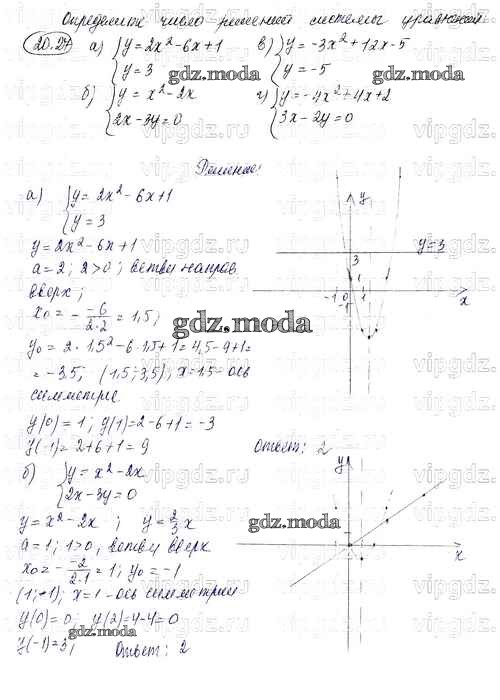 Определить число решений системы уравнений
20.27 а) { y = 2x² - 6x + 1 в) { y = -3x² + 12x - 5
y = 3 y = -5
б) { y = x² - 2x г) { y = -4x² + 4x + 2
2x - 3y = 0 3x - 2y = 0
gdz.moda
Решение:
а) { y = 2x² - 6x + 1
y = 3
y = 2x² - 6x + 1
a = 2; 2 > 0; ветви направ
вверх;
x₀ = - -6/2·2 = 1,5;
y₀ = 2·1,5² - 6·1,5 + 1 = 4,5 - 9 + 1 =
= -3,5; (1,5; -3,5), x = 1,5 - ось
симметрии
y(0) = 1; y(1) = 2 - 6 + 1 = -3
y(-1) = 2 + 6 + 1 = 9
y
y = 3
3
1
-1 0 1 x
-1
gdz.moda
Ответ: 2
б) { y = x² - 2x
2x - 3y = 0
y = x² - 2x; y = 2/3 x
a = 1; 1 > 0, ветви вверх
x₀ = - -2/2·1 = 1; y₀ = -1
(1; -1), x = 1 - ось симметрии
y(0) = 0; y(2) = 4 - 4 = 0
y(-1) = 3; Ответ: 2
y
x
gdz.moda
gdz.moda
vipgdz.ru